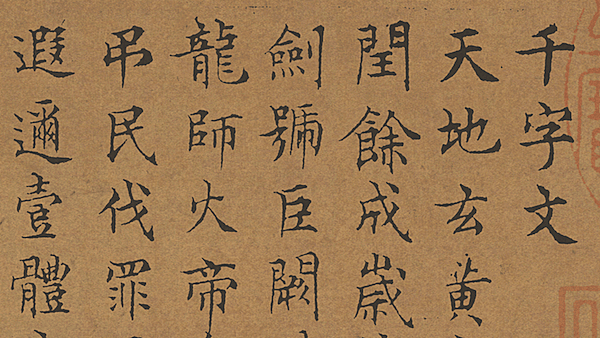 千字文
天地玄黃
閏餘成歲
劍號巨闕
龍師火帝
弔民伐罪
遐邇壹體